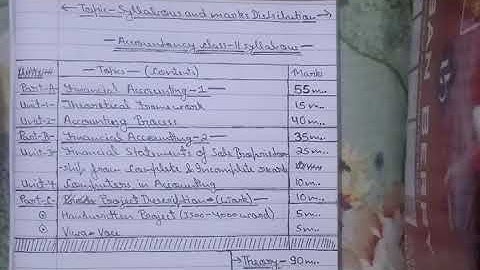 Topic - Syllabus and marks Distribution
- Accountancy class-11 syllabus -
Units - Topics - (Contents) Marks
Part-A Financial Accounting-1 55m..
Unit-1- Theoretical framework 15m..
Unit-2- Accounting Process 40m..
Part-B- Financial Accounting-2 35m..
Unit-3- Financial Statements of Sole Proprietor 25m..
-ship from Complete & Incomplete records
Unit-4 Computers in Accounting 10m..
Part-C- Project Description (Work) 10m..
Handwritten Project (1500-4000 word) 5m..
Viva-Voce 5m..
Theory-90m..